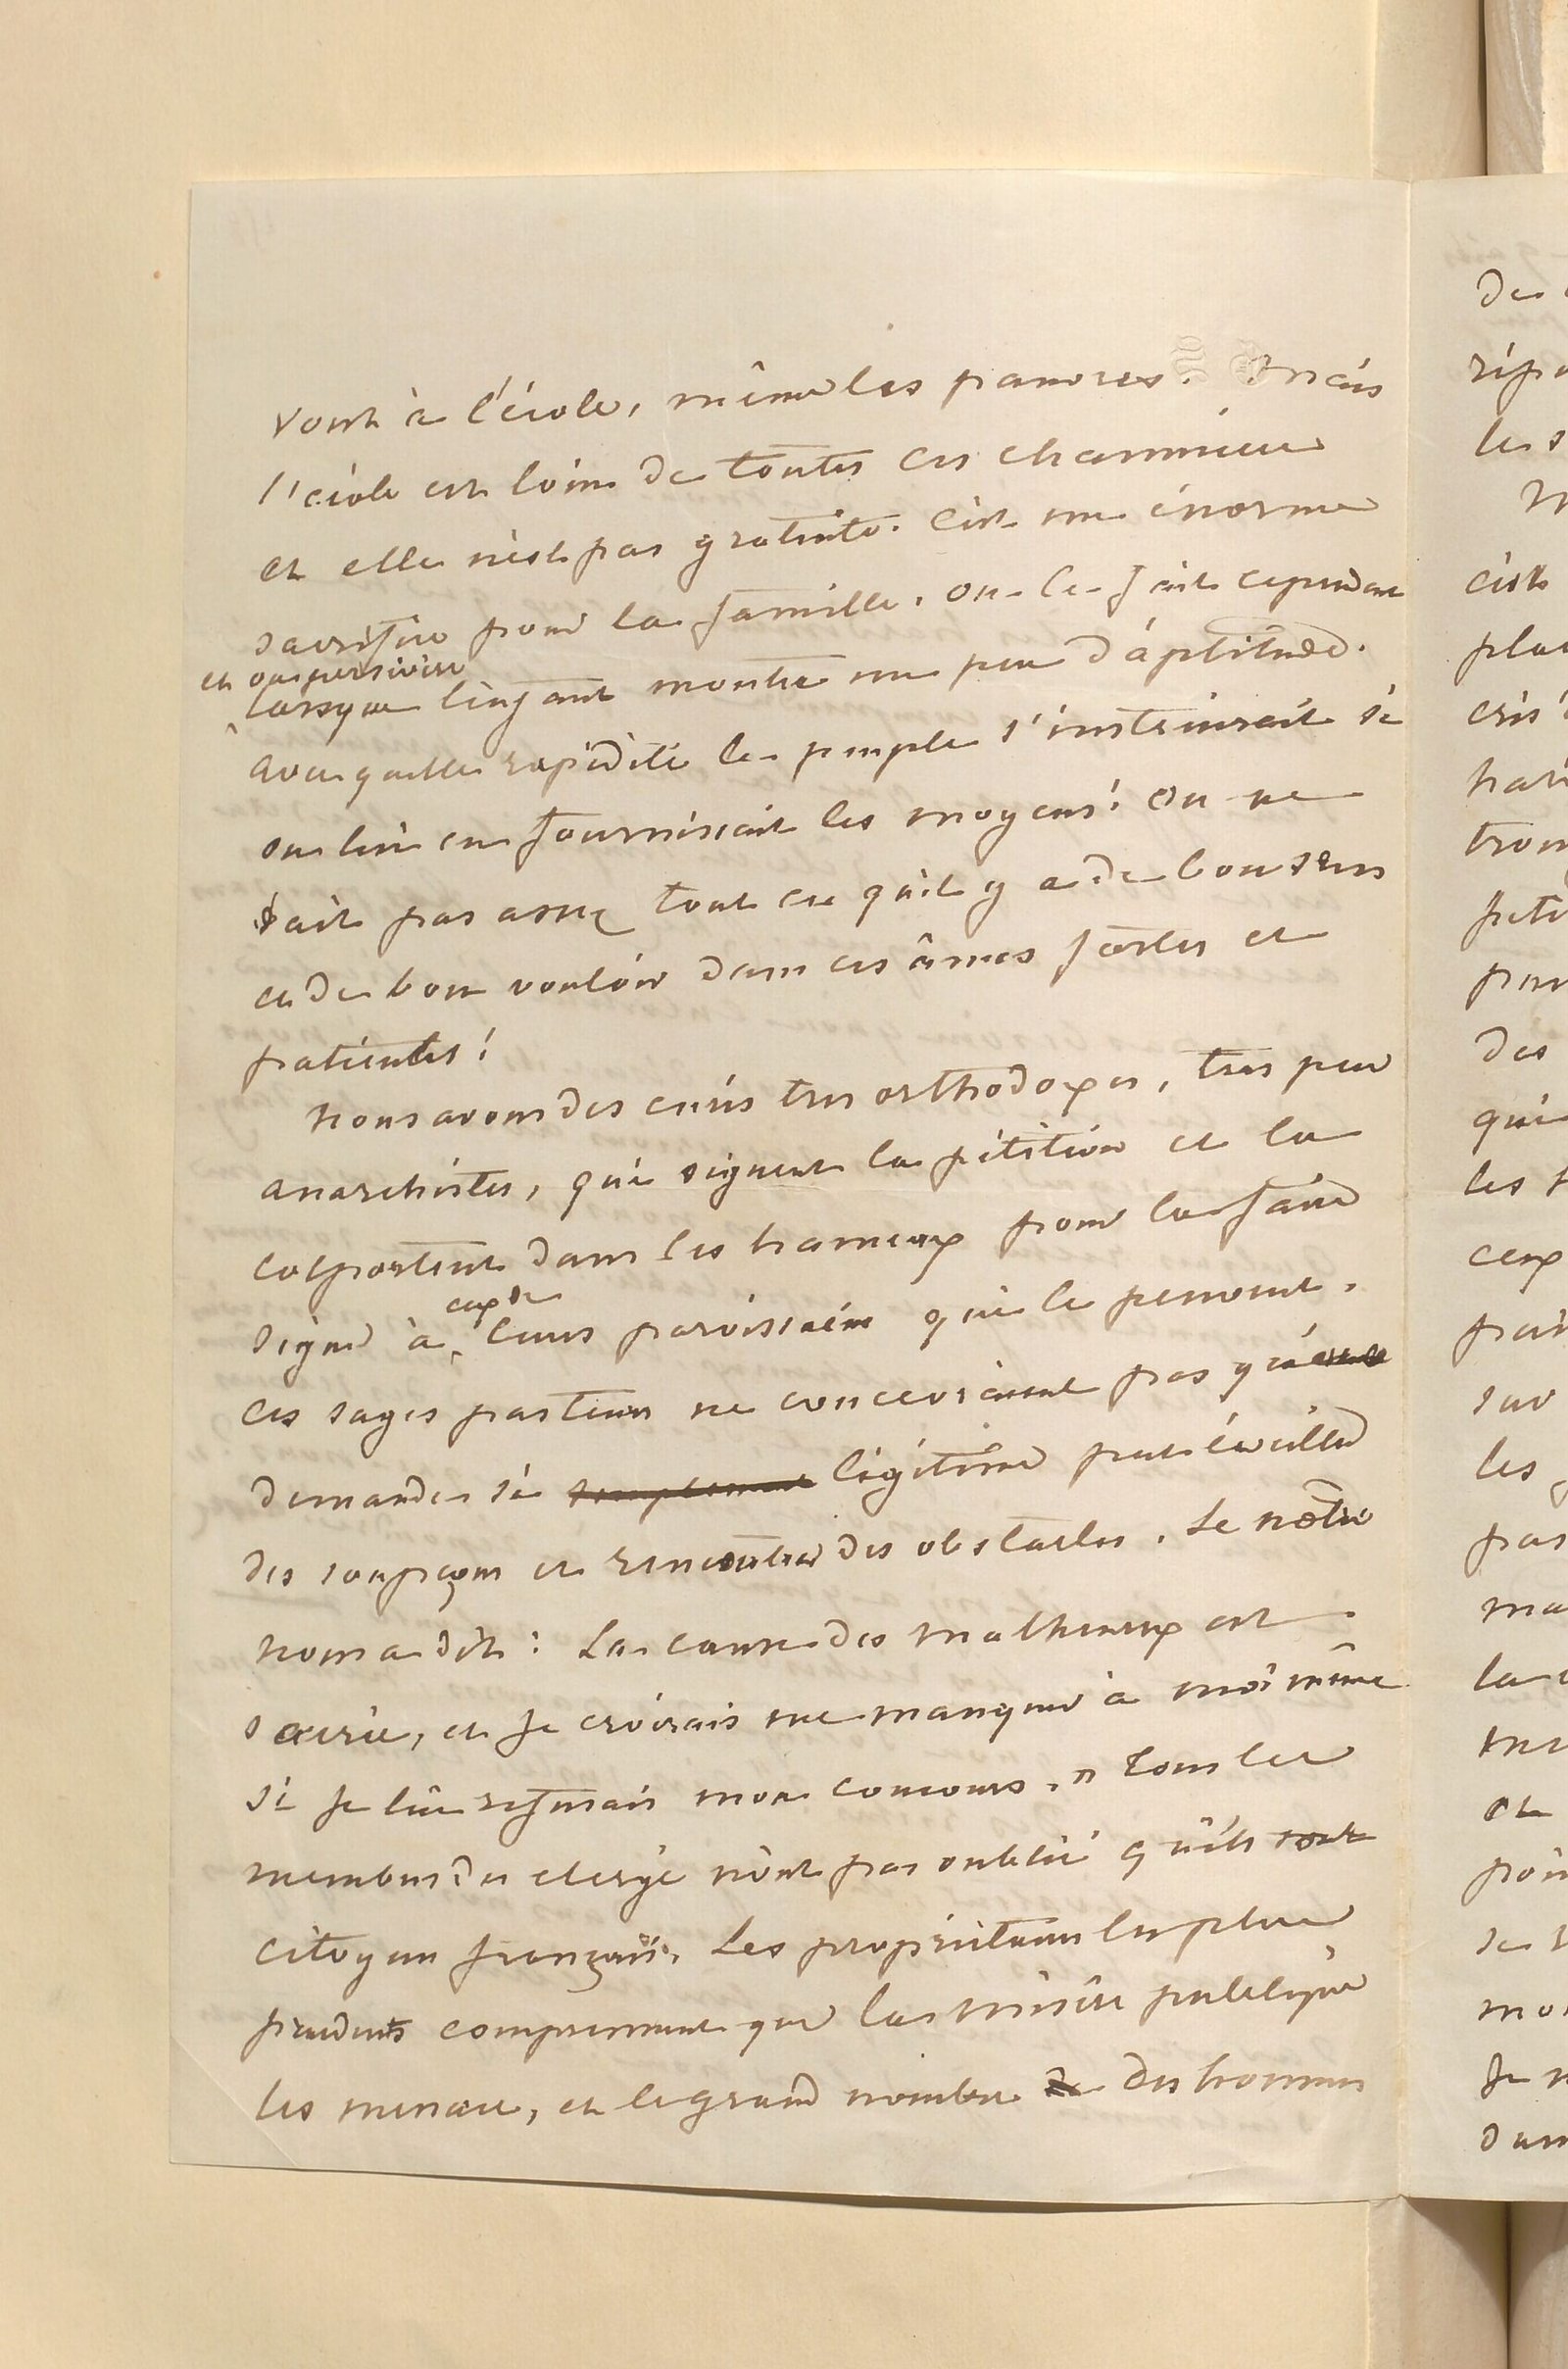 vont à l'école, même les pauvres. Mais
l'école est loin de toutes ces chaumières
et elle n'est pas gratuite. C'est un énorme
sacrifice pour la famille. On le fait cependant
et on persévère
lorsque l'enfant montre un peu d'aptitude.
Avec quelle rapidité le peuple s'instruirait si
on lui en fournissait les moyens! On ne
sait pas assez tout ce qu'il y a de bon sens
et de bon vouloir dans ces âmes fortes et
patientes!
Nous avons des curés très orthodoxes, très peu
anarchistes, qui signent la pétition et la
colportent dans les hameaux pour la faire
signer à ceux de leurs paroissiens qui le peuvent.
Ces sages pasteurs ne concevraient pas qu'une
demande si légitime peut éveiller
des soupçons et rencontrer des obstacles. Le nôtre
nous a dit: La cause des malheureux est
sacrée, et je croirais me manquer à moi même
si je lui refusais mon concours." Tous les
membres du clergé n'ont pas oublié qu'ils sont
citoyens français. Les propriétaires les plus
prudents comprennent que la misère publique
les menace, et le grand nombre des hommes
de
les s
M
c'est
des
qui
les
ceux
sur
les
pas
la
et